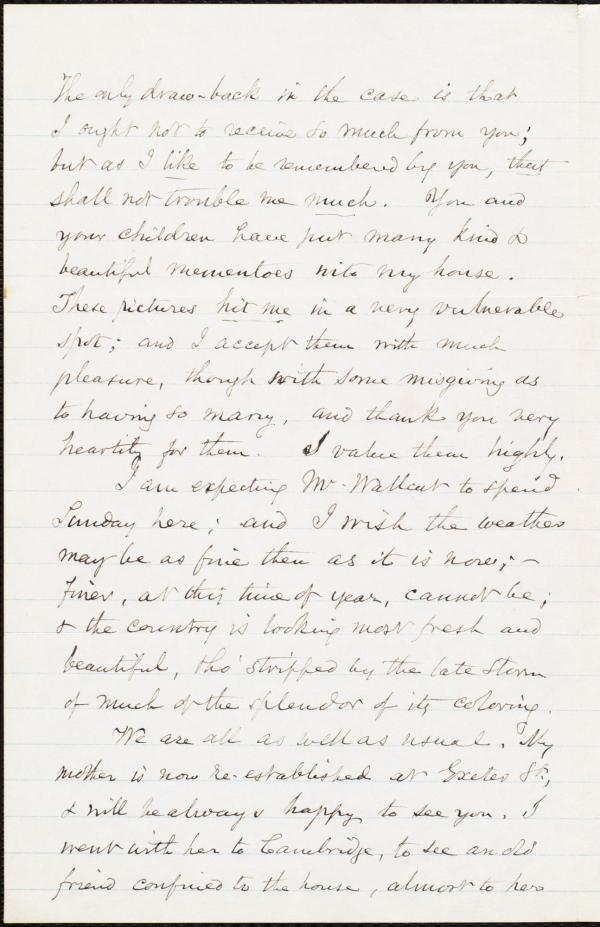 The only draw-back in the case is that
I ought not to receive so much from you;
but as I like to be remembered by you, that
shall not trouble me much. You and
your children have put many kind &
beautiful mementoes into my house.
These pictures hit me in a very vulnerable
spot; and I accept them with much
pleasure, though with some misgiving as
to having so many, and thank you very
heartily for them. I value them highly.
I am expecting Mr. Wallcut to spend
Sunday here; and I wish the weather
may be as fine then as it is now; –
finer, at this time of year, cannot be;
& the country is looking most fresh and
beautiful, tho' stripped by the late storm
of much of the splendor of its coloring.
We are all as well as usual. My
mother is now re-established at Exeter St.,
& will be always happy to see you. I
went with her to Cambridge, to see an old
friend confined to the house, almost to her